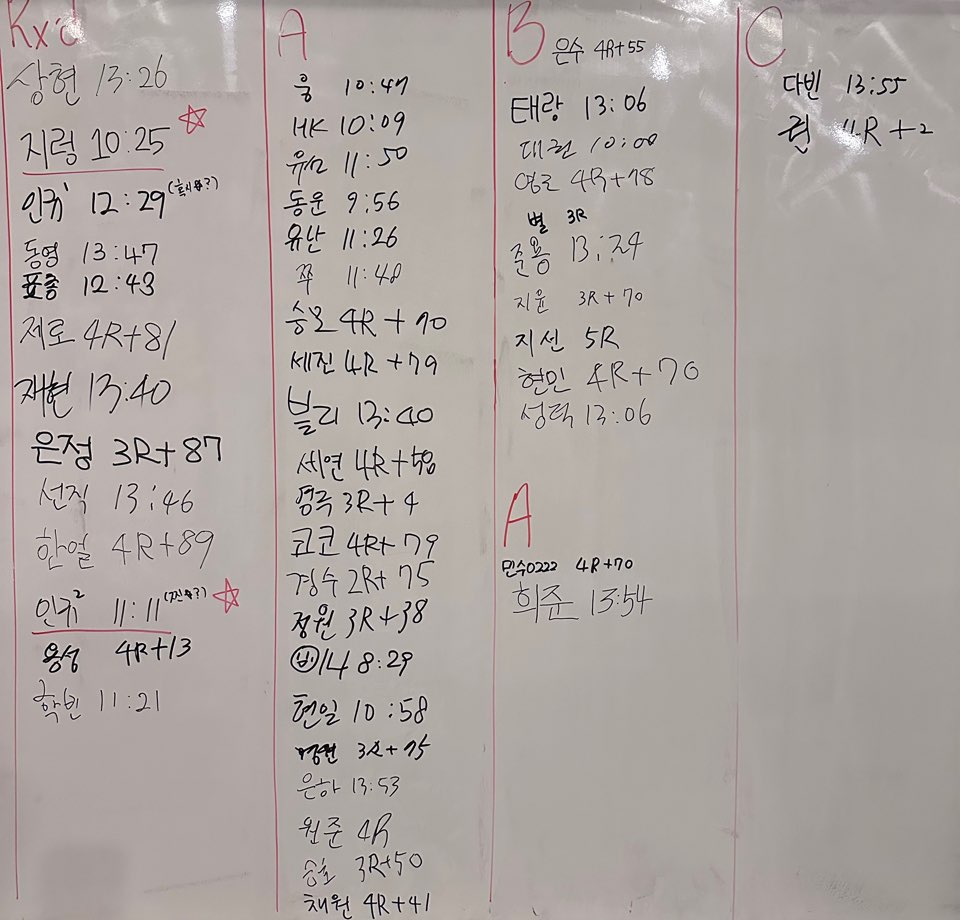 Rx'd
상현 13:26
지령 10:25
인귀' 12:29
동영 13:47
표층 12:43
제로 4R+81
재현 13:40
은정 3R+87
선직 13:46
한얼 4R+89
인귀² 11:11
용성 4R+13
학빈 11:21
A
웅 10:47
HK 10:09
11:50
동운 9:56
유난 11:26
쭈 11:48
4R+70
세진 4R+79
블리 13:40
세연 4R+
영국 3R+4
코코 4R+79
경수 2R+75
정원 3R+38
8:29
현일 10:58
3R+75
은하 13:53
원준 4R
승호 3R+50
채원 4R+41
B
은수 4R+55
태랑 13:06
대권 10:00
4R+78
별 3R
준용 13:24
지윤 3R+70
지선 5R
현민 4R+70
성덕 13:06
A
민수0222 4R+70
희준 13:54
C
다빈 13:55
4R+2